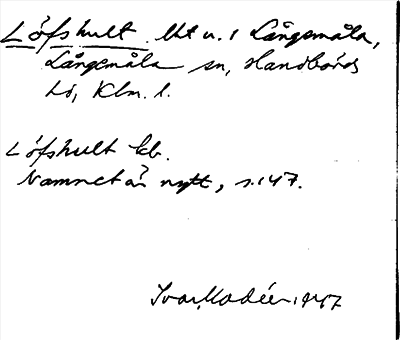 Löfshult. lht u. 1 Långemåla,
Långemåla sn, Handbörds
hd, Klm. l.
Löfshult kb.
Namnet är nytt, s. 147.
Ivar Modéer, 1947